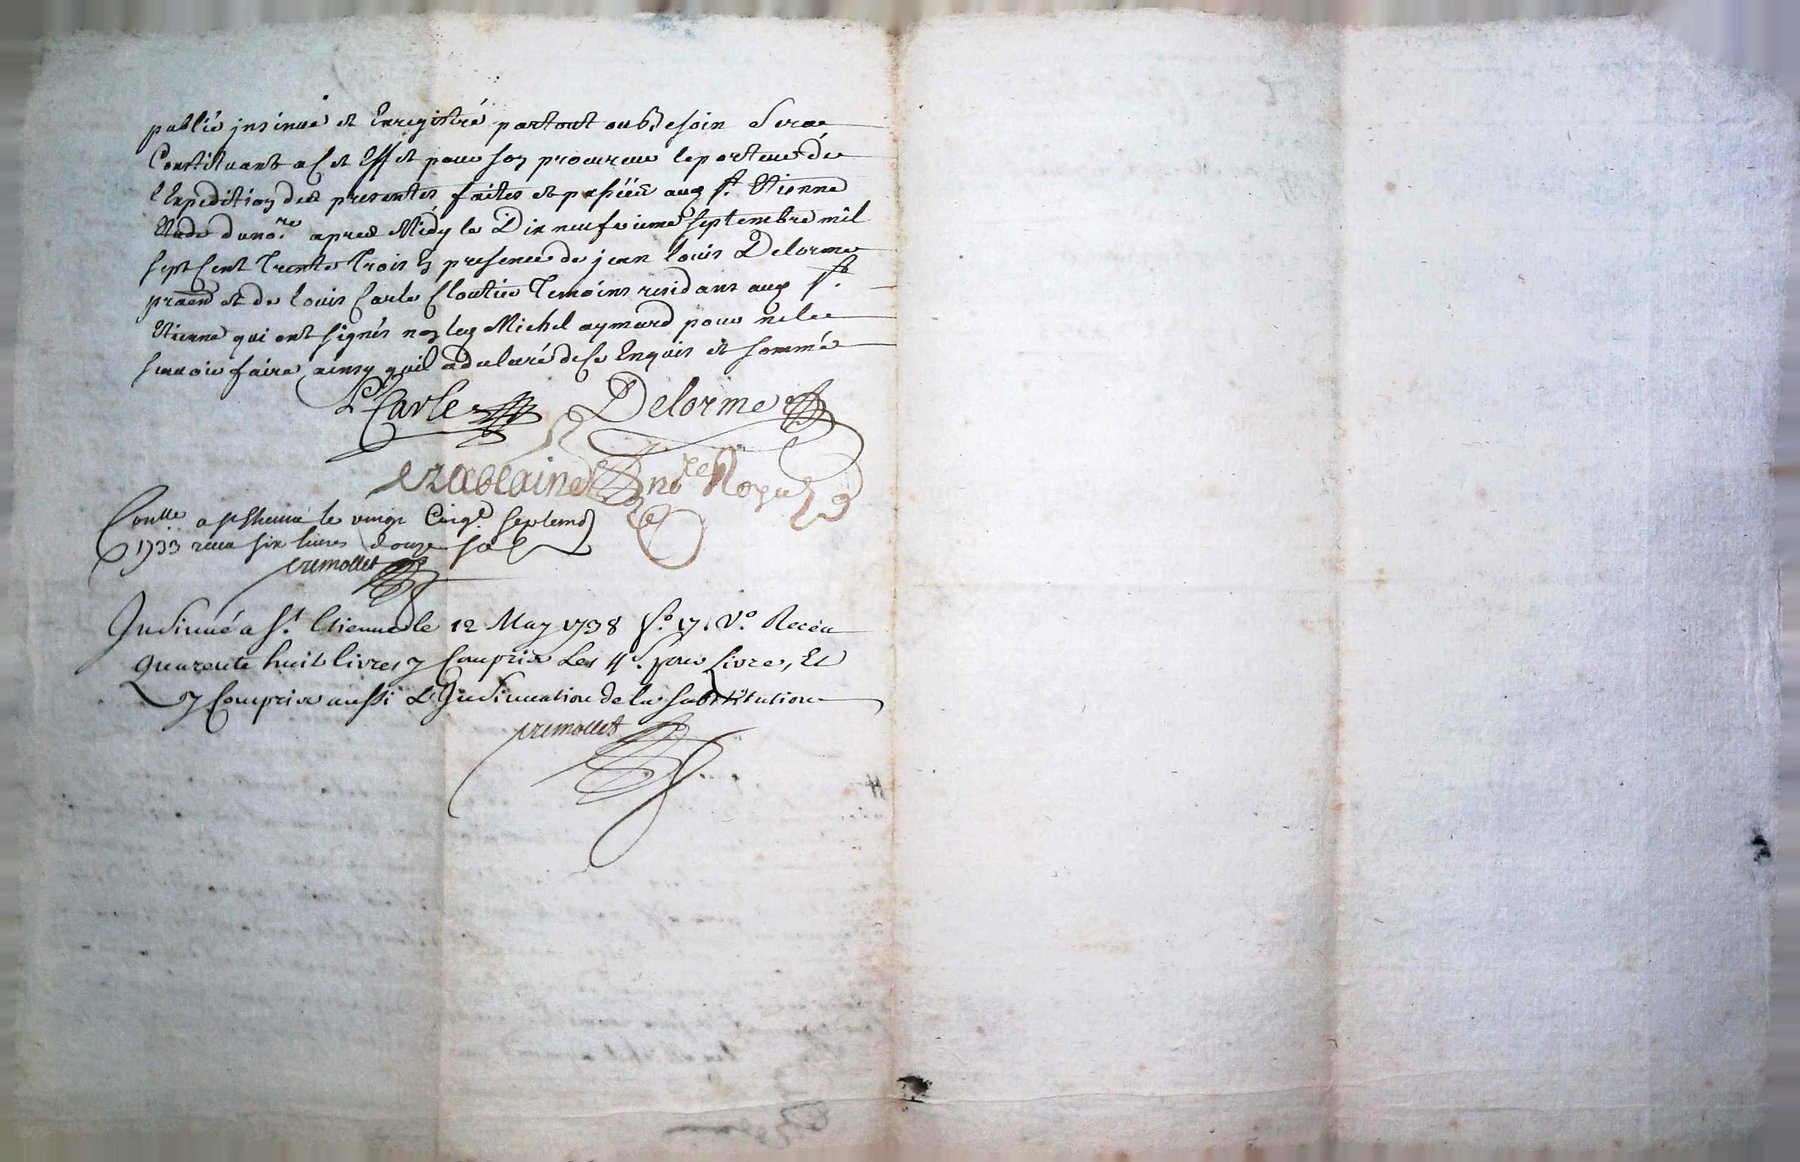 publié jnsinué et Enregistré partout ou besoin Sera
Constituant a Cet Effet pour son procureur le porteur de
l'Expedition des presentes, faites et passées aud St. Etienne
Etude du no.re apres Midy le Dix neufvieme Septembre mil
sept Cent Trente Trois En presence de jean louis Delorme
praen et de louis Carle Cloutier Temoins residans aud St.
Etienne qui ont signés non led Michel aymard pour ne le
scavoir faire ainsy quil a declaré de ce Enquis et sommé
L Carle Delorme
no.re Royal
Conlle a St Etienne le vingt Cinq.e Septemb
1733 receu six livres douze sol
cremollet
Insinué a St. Etienne le 12 May 1738 fo. 17. Vo. Receu
quarente huit livres y Compris Les 4 s. pour Livre, Et
y Compris aussi L'Insinuation de la substitution
cremollet